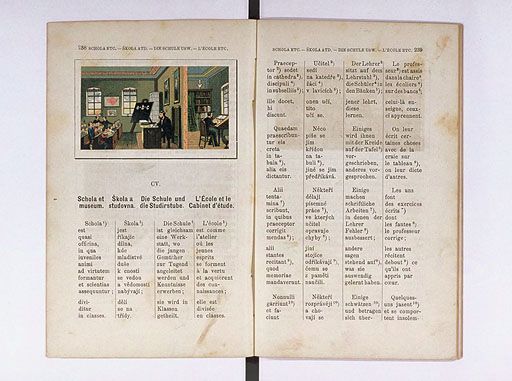 238 SCHOLA ETC. — ŠKOLA ATD. — DIE SCHULE USW. — L'ÉCOLE ETC.
CV.
Schola et Škola a Die Schule und L'École et le
museum. studovna. die Studirstube. Cabinet d'étude.
Schola¹) Škola¹) Die Schule¹) L'école¹)
est jest ist gleichsam est comme
quasi říkajíc eine Werk- l'atelier
officina, dílna, statt, wo où les
in qua kde die jungen jeunes
iuveniles mladistvé Gemüther esprits
animi duchy zur Tugend se forment
ad virtutem k cnosti angeleitet à la vertu
formantur se vedou werden und et acquièrent
et scientias a vědomosti Kenntnisse des con-
assequuntur; nabývají; erwerben; naissances;
divi- dělí sie wird in elle est
ditur se na Klassen divisée
in classes. třídy. getheilt. en classes.
SCHOLA ETC. — ŠKOLA ATD. — DIE SCHULE USW. — L'ÉCOLE ETC. 239
Praecep- Učitel²) Der Lehrer²) Le profes-
tor²) sedet sedí sitzt auf dem seur²) est assis
in cathedra³), na katedře³), Lehrstuhl³), dans la chaire³)
discipuli⁴) žáci⁴) die Schüler⁴) in les écoliers⁴)
in subselliis⁵); v lavicích⁵); den Bänken⁵); sur des bancs⁵);
ille docet, onen učí, jener lehrt, celui-là en-
hi tito diese seigne, ceux-
discunt. učí se. lernen. ci apprennent.
Quaedam Něco Einiges On leur
praescribun- píše se wird ihnen écrit cer-
tur eis jim mit der Kreide taines choses
creta křídou auf der Tafel⁶) avec de la
in ta- na ta- vor- craie sur
bula⁶), buli⁶), geschrieben, le tableau⁶),
alia eis jiné se jim anderes vor- ou leur dicte
dictantur. předříkává. gesprochen. d'autres.
Alii Někteří Einige Les uns
tenta- dělají machen font
mina⁷) písemné schriftliche des exercices
scribunt, práce⁷), Arbeiten⁷), écrits⁷)
in quibus ve kterých in denen der dont
praeceptor učitel Lehrer les fautes⁸)
corrigit opravuje Fehler⁸) le professeur
mendas⁸); chyby⁸); ausbessert; corrige;
alii jiní andere les autres
stantes stojíce sagen récitent
recitant⁹), odříkávají⁹), stehend auf⁹), debout⁹) ce
quod čemu se was sie qu'ils ont
memoriae z paměti auswendig appris par
mandaverunt. naučili. gelernt haben. cœur.
Nonnulli Někteří Einige Quelques-
garriunt¹⁰) rozprávějí¹⁰) schwätzen¹⁰) uns jasent¹⁰)
et fa- a cho- und betragen et se compor-
ciunt vají se sich über- tent insolem-